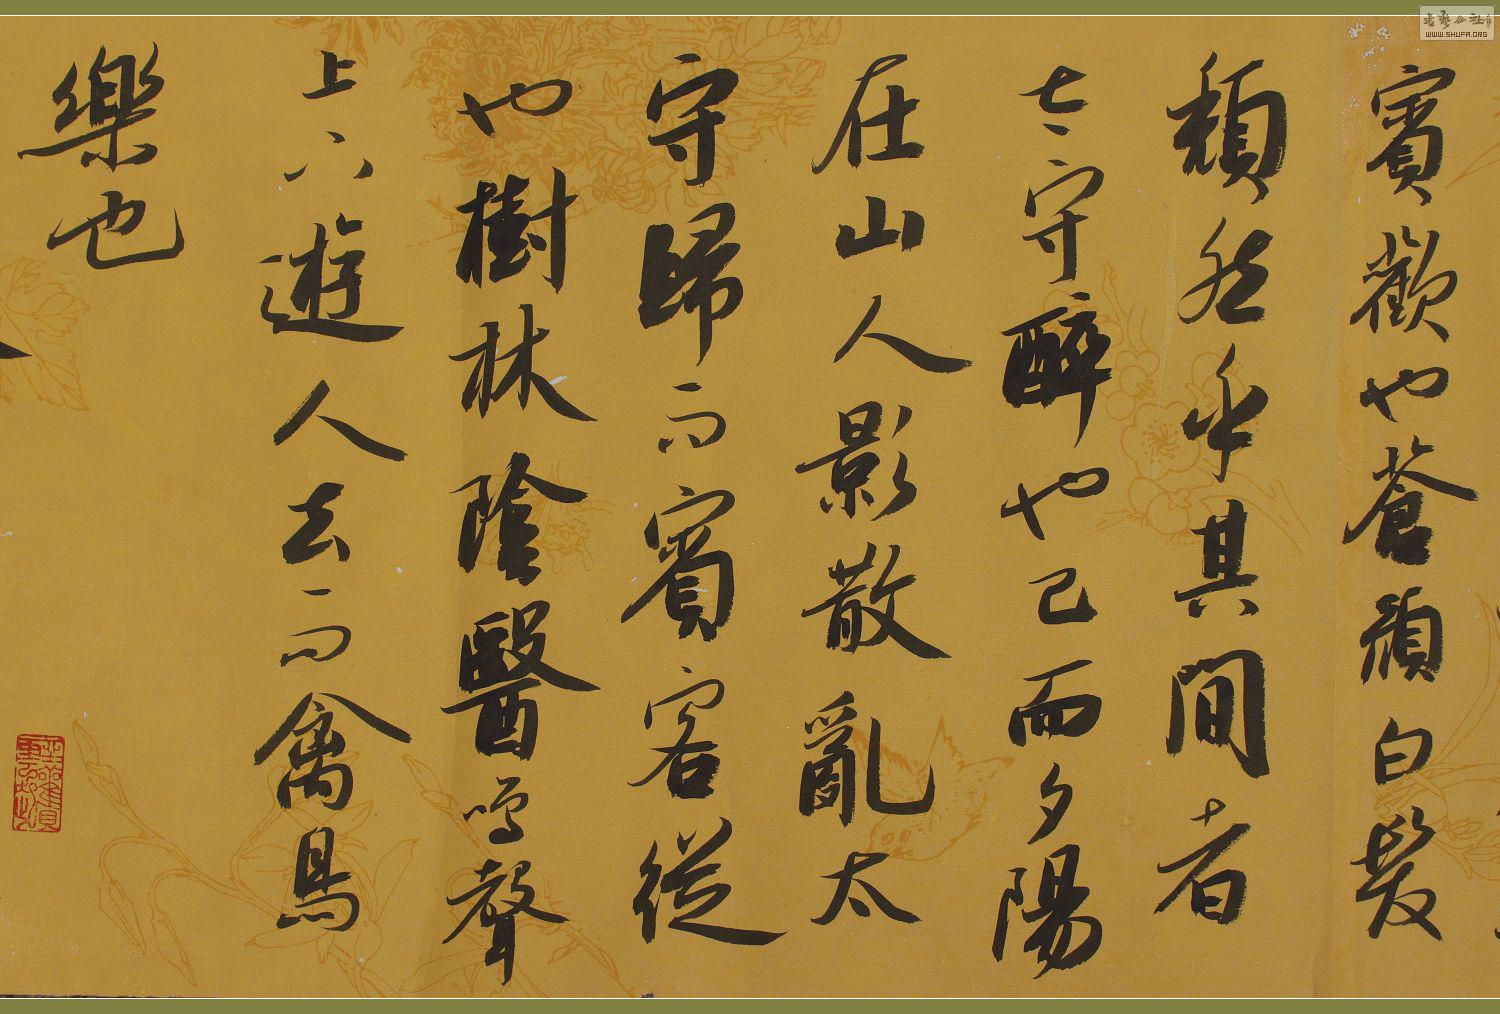 賓歡也蒼顔白髮
頽然乎其間者
太守醉也已而夕陽
在山人影散亂太
守歸而賓客從
也樹林陰醫鳴聲
上下遊人去而禽鳥
樂也
WWW.SHUFA.ORG